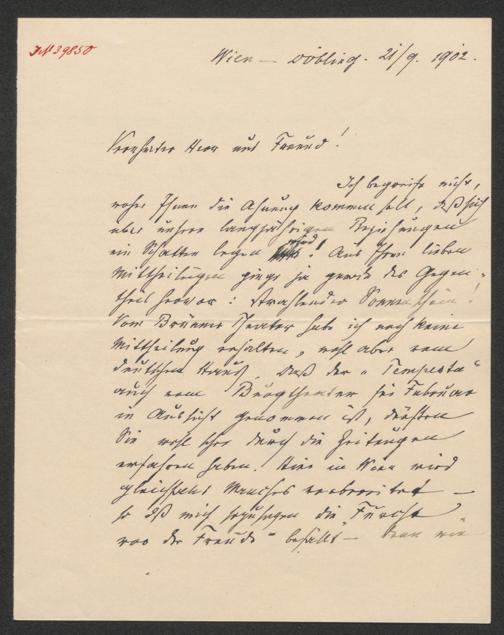 JN 39850
Wien – Döbling. 21/9. 1902.
Verehrter Herr und Freund!
Ich begreife nicht,
woher Ihnen die Ahnung kommen soll, daß sich
über unsere langjährigen Beziehungen
ein Schatten legen wird! Aus Ihren lieben
Mittheilungen ging ja gerade das Gegen-
theil hervor: strahlender Sonnenschein!
Vom Brünner Theater habe ich noch keine
Mittheilung erhalten, wohl aber vom
deutschen Haus. Daß der "Tempesta"
auch vom Burgtheater für Februar
in Aussicht genommen ist, dürften
Sie wohl schon durch die Zeitungen
erfahren haben. Hier in Wien wird
gleichfalls Manches vorbereitet –
so daß mich sozusagen die "Furcht
vor der Freude" befällt – denn wie